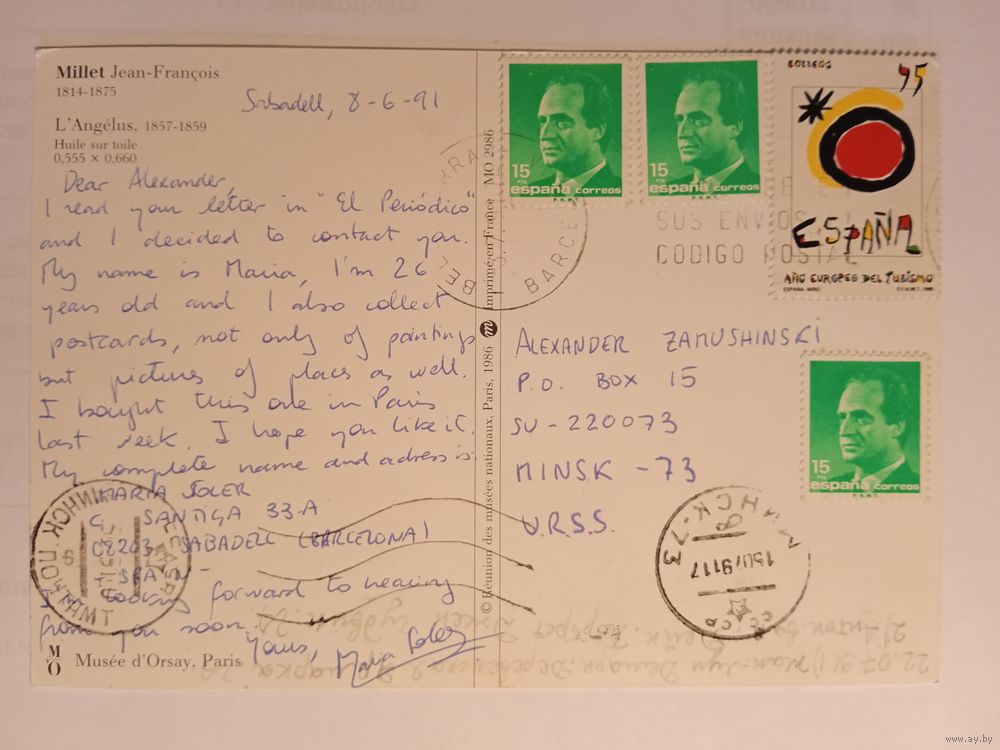 Millet Jean-François
1814-1875
L'Angélus, 1857-1859
Huile sur toile
0,555 × 0,660
Sabadell, 8-6-91
Dear Alexander,
I read your letter in "El Periódico"
and I decided to contact you.
My name is Maria, I'm 26
years old and I also collect
postcards, not only of paintings
but pictures of places as well.
I bought this one in Paris
last week. I hope you like it.
My complete name and adress is
MARIA SOLER
C. SANTIGA 33-A
08203 SABADELL (BARCELONA)
- SPAIN -
looking forward to hearing
from you soon.
Yours,
Maria Soler
M
O
Musée d'Orsay, Paris
© Réunion des musées nationaux, Paris, 1986 m Imprimé en France MO 2986
15 PTA
españa correos
F.N.M.T.
15 PTA
españa correos
F.N.M.T.
CORREOS
45
ESPAÑA
AÑO EUROPEO DEL TURISMO
ESPAÑA. MIRO F.N.M.T. 1990
BARCE
SUS ENVIOS
CODIGO POSTAL
ALEXANDER ZAMUSHINSKI
P.O. BOX 15
SU-220073
MINSK -73
U.R.S.S.
15 PTA
españa correos
F.N.M.T.
МИНСК-73
СССР
МИНСК ПОЧТАМТ
22.07.91.
www.ay.by